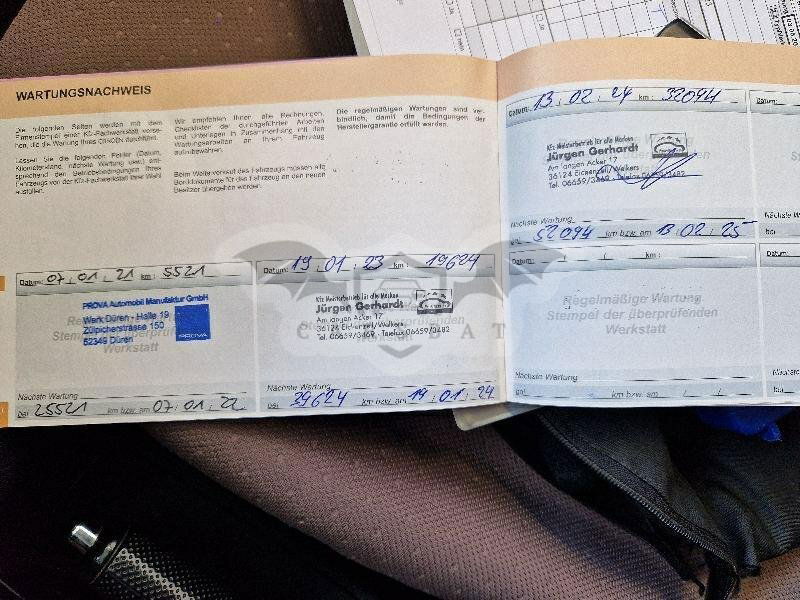 WARTUNGSNACHWEIS
Die folgenden Seiten werden mit dem
Firmenstempel einer Kfz-Fachwerkstatt verse-
hen, die die Wartung Ihres CITROËN durchführt.
Lassen Sie die folgenden Felder (Datum,
Kilometerstand, nächste Wartung usw.) ent-
sprechend den Betriebsbedingungen Ihres
Fahrzeugs von der Kfz-Fachwerkstatt Ihrer Wahl
ausfüllen.
Wir empfehlen Ihnen, alle Rechnungen,
Checklisten der durchgeführten Arbeiten
und Unterlagen in Zusammenhang mit den
Wartungsarbeiten an Ihrem Fahrzeug
aufzubewahren.
Beim Weiterverkauf des Fahrzeugs müssen alle
Borddokumente für das Fahrzeug an den neuen
Besitzer übergeben werden.
Die regelmäßigen Wartungen sind ver-
bindlich, damit die Bedingungen der
Herstellergarantie erfüllt werden.
Datum: 07 / 01 / 21 km : 5521
PROVA Automobil Manufaktur GmbH
Werk Düren - Halle 19
Zülpicherstrasse 150
52349 Düren
PROVA
Nächste Wartung
bei 25521 km bzw. am 07 / 01 / 22
Datum: 19 / 01 / 23 km : 19624
Kfz Meisterbetrieb für alle Marken
Jürgen Gerhardt
Am langen Acker 17
36124 Eichenzell/Welkers
Tel. 06659/3469 - Telefax 06659/3482
Werkstatt
Nächste Wartung
bei 39624 km bzw. am 19 / 01 / 24
Datum: 13 / 02 / 24 km : 32094
Kfz Meisterbetrieb für alle Marken
Jürgen Gerhardt
Am langen Acker 17
36124 Eichenzell/Welkers
Tel. 06659/3469 - Telefax 06659/3482
Nächste Wartung
bei 52094 km bzw. am 13 / 02 / 25
Datum: / / km :
Regelmäßige Wartung
Stempel der überprüfenden
Werkstatt
Nächste Wartung
bei km bzw. am / /
Datum:
Nächste Wartung
bei
Datum:
Nächste
bei